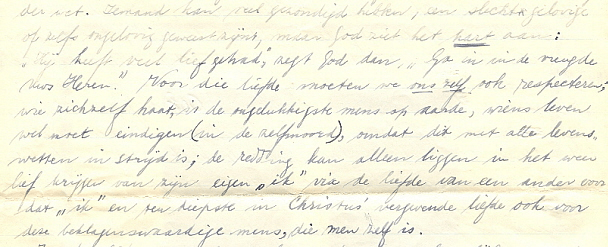 der act. Iemand kan veel gezondigd hebben, een slecht gelovige
of zelfs ongelovig geweest zijn, maar God ziet het hart aan:
"Hij heeft veel liefgehad," zegt God dan. "Ga in in de vreugde
uws Heren." Voor die liefde moeten we ons zelf ook respecteren;
wie zichzelf haat, is de ongelukkigste mens op aarde, wiens leven
wel moet eindigen (in de zelfmoord), omdat dit met alle levens-
wetten in strijd is; de redding kan alleen liggen in het weer
lief krijgen van zijn eigen "ik" via de liefde van een ander voor
dat "ik" en ten diepste in Christus' vergevende liefde ook voor
deze beklagenswaardige mens, die men zelf is.